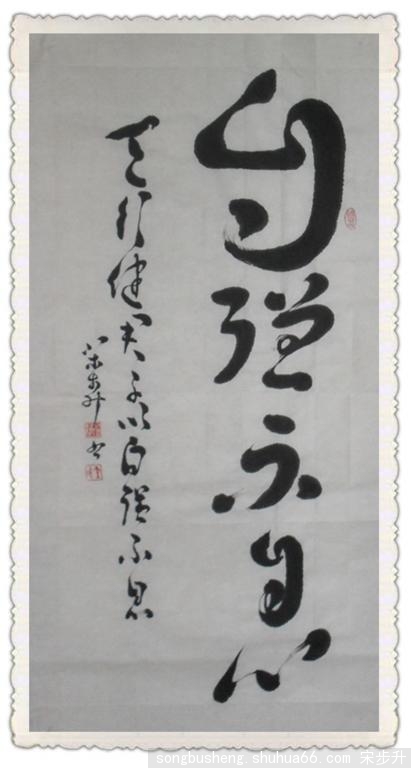 自强不息
天行健君子以自强不息
宋步升书
songbusheng@shuhua66.com 宋步升